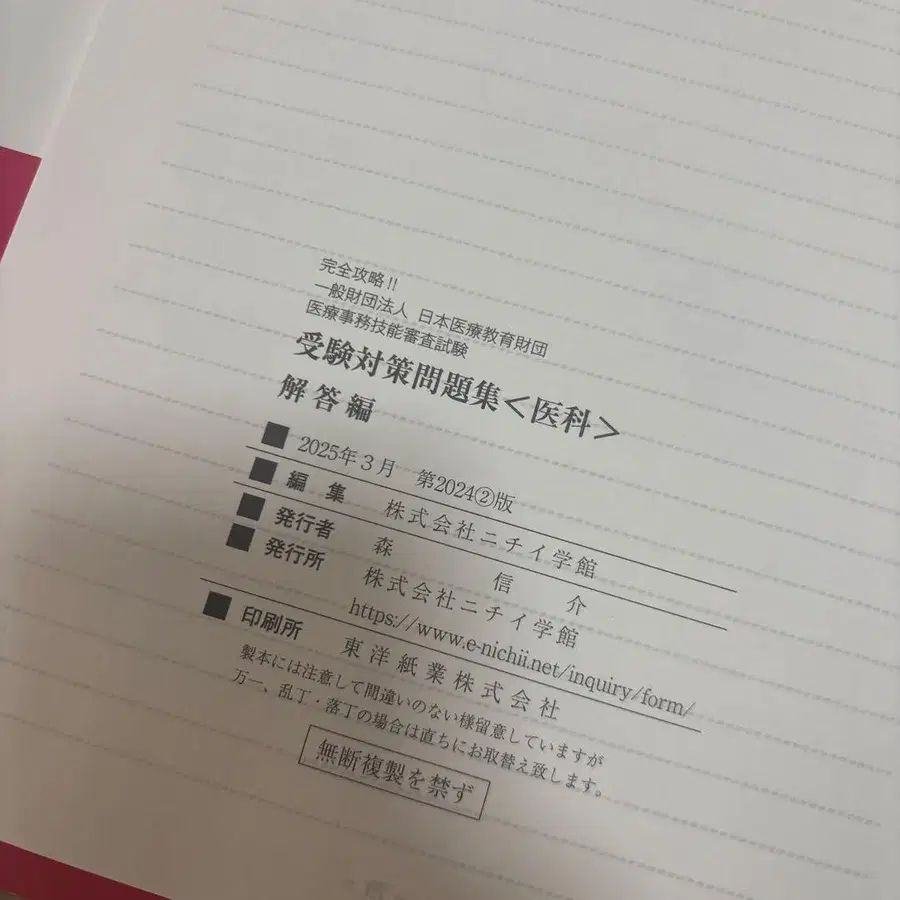 完全攻略!!
一般財団法人 日本医療教育財団
医療事務技能審査試験
受験対策問題集<医科>
解答編
■ 2025年3月 第2024②版
■ 編集 株式会社ニチイ学館
■ 発行者 森信介
■ 発行所 株式会社ニチイ学館
https://www.e-nichii.net/inquiry/form/
■ 印刷所 東洋紙業株式会社
製本には注意して間違いのない様留意していますが
万一、乱丁・落丁の場合は直ちにお取替え致します。
無断複製を禁ず